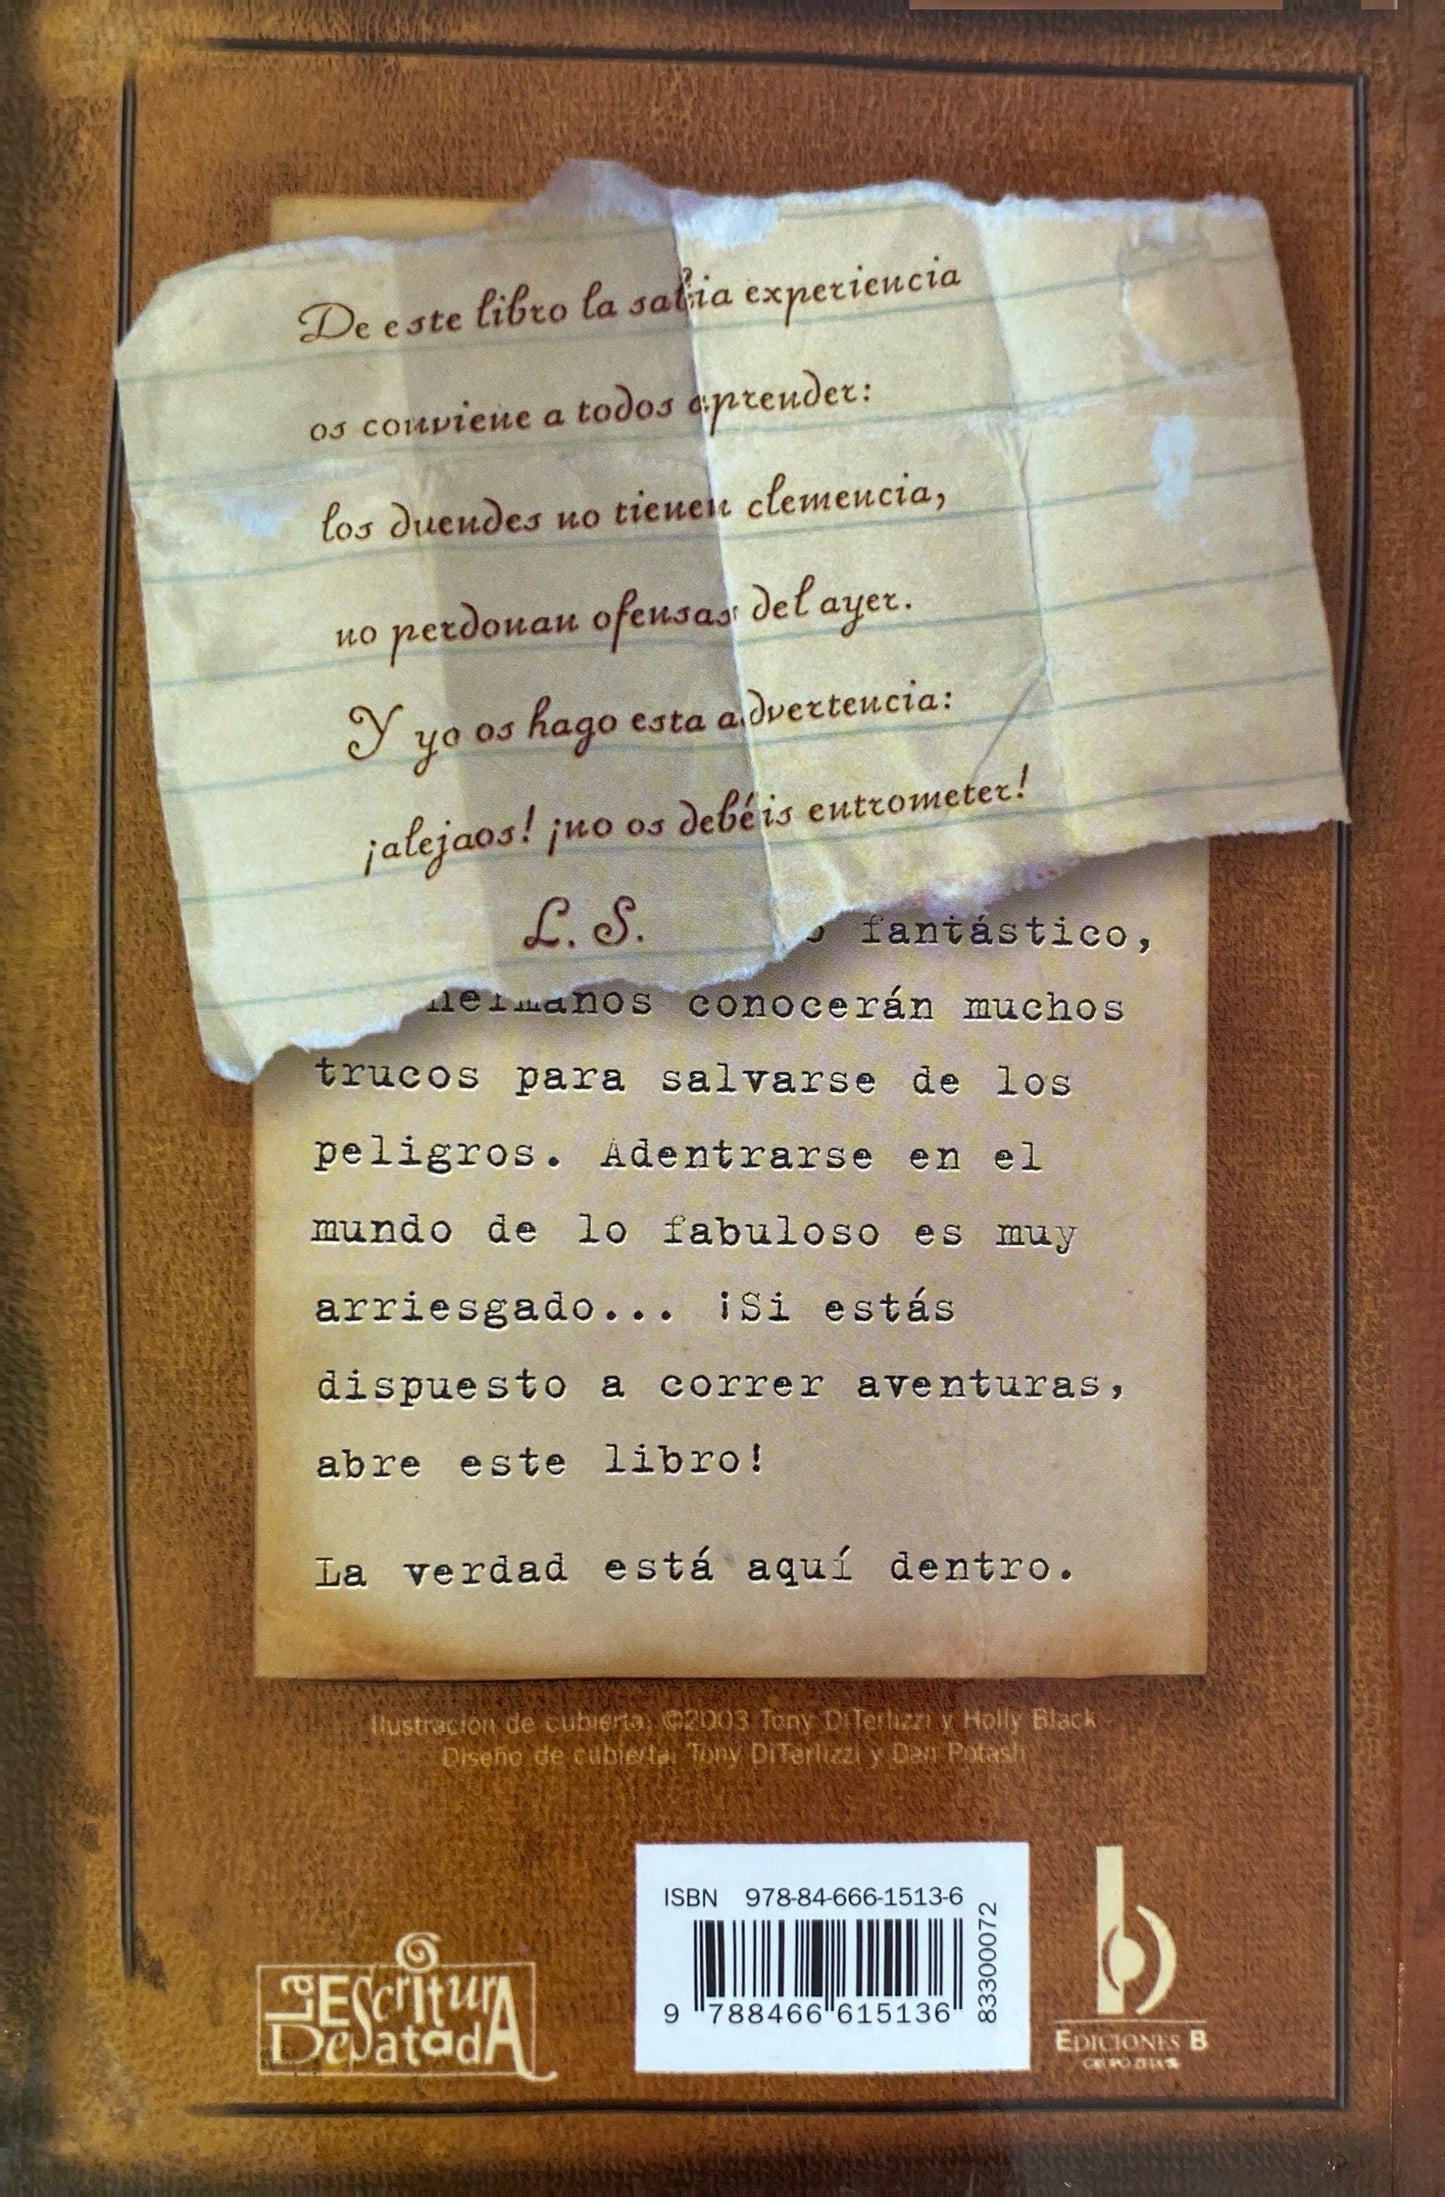 De este libro la sabia experiencia
os conviene a todos aprender:
los duendes no tienen clemencia,
no perdonan ofensas del ayer.
Y yo os hago esta advertencia:
¡alejaos! ¡no os debéis entrometer!
L. S.
fantástico,
hermanos conocerán muchos
trucos para salvarse de los
peligros. Adentrarse en el
mundo de lo fabuloso es muy
arriesgado... ¡Si estás
dispuesto a correr aventuras,
abre este libro!
La verdad está aquí dentro.
Ilustración de cubierta: ©2003 Tony DiTerlizzi y Holly Black
Diseño de cubierta: Tony DiTerlizzi y Dan Potash
La Escritura
Desatada
ISBN 978-84-666-1513-6
9 788466 615136
83300072
b
EDICIONES B
GRUPO ZETA